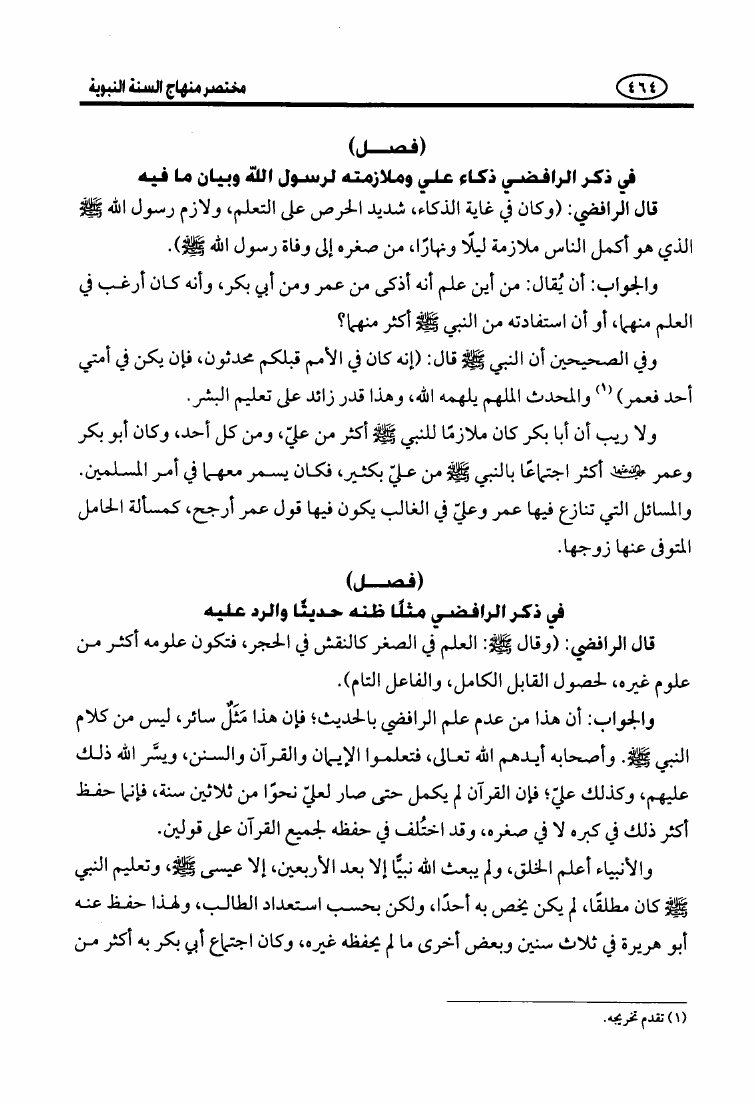 ٤٦٤
مختصر منهاج السنة النبوية
(فصـــل)
في ذكر الرافضي ذكاء علي وملازمته لرسول الله وبيان ما فيه
قال الرافضي: (وكان في غاية الذكاء، شديد الحرص على التعلم، ولازم رسول الله ﷺ
الذي هو أكمل الناس ملازمة ليلًا ونهارًا، من صغره إلى وفاة رسول الله ﷺ).
والجواب: أن يُقال: من أين علم أنه أذكى من عمر ومن أبي بكر، وأنه كان أرغب في
العلم منهما، أو أن استفادته من النبي ﷺ أكثر منهما؟
وفي الصحيحين أن النبي ﷺ قال: (إنه كان في الأمم قبلكم محدثون، فإن يكن في أمتي
أحد فعمر) (١) والمحدث الملهم يلهمه الله، وهذا قدر زائد على تعليم البشر.
ولا ريب أن أبا بكر كان ملازمًا للنبي ﷺ أكثر من عليّ، ومن كل أحد، وكان أبو بكر
وعمر رضي الله عنهما أكثر اجتماعًا بالنبي ﷺ من عليّ بكثير، فكان يسمر معهما في أمر المسلمين.
والمسائل التي تنازع فيها عمر وعليّ في الغالب يكون فيها قول عمر أرجح، كمسألة الحامل
المتوفى عنها زوجها.
(فصـــل)
في ذكر الرافضي مثلًا ظنه حديثًا والرد عليه
قال الرافضي: (وقال ﷺ: العلم في الصغر كالنقش في الحجر، فتكون علومه أكثر من
علوم غيره، لحصول القابل الكامل، والفاعل التام).
والجواب: أن هذا من عدم علم الرافضي بالحديث؛ فإن هذا مَثَلٌ سائر، ليس من كلام
النبي ﷺ. وأصحابه أيدهم الله تعالى، فتعلموا الإيمان والقرآن والسنن، ويسَّر الله ذلك
عليهم، وكذلك عليّ؛ فإن القرآن لم يكمل حتى صار لعليّ نحوًا من ثلاثين سنة، فإنما حفظ
أكثر ذلك في كبره لا في صغره، وقد اختُلف في حفظه لجميع القرآن على قولين.
والأنبياء أعلم الخلق، ولم يبعث الله نبيًّا إلا بعد الأربعين، إلا عيسى ﷺ، وتعليم النبي
ﷺ كان مطلقًا، لم يكن يخص به أحدًا، ولكن بحسب استعداد الطالب، ولهذا حفظ عنه
أبو هريرة في ثلاث سنين وبعض أخرى ما لم يحفظه غيره، وكان اجتماع أبي بكر به أكثر من
(١) تقدم تخريجه.